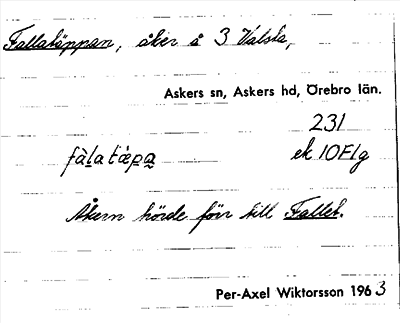 Fallatäppan, åker å 3 Valsta,
Askers sn, Askers hd, Örebro län.
231
fàlatæpa ek 10F1g
Åkern hörde förr till Fallet.
Per-Axel Wiktorsson 1963